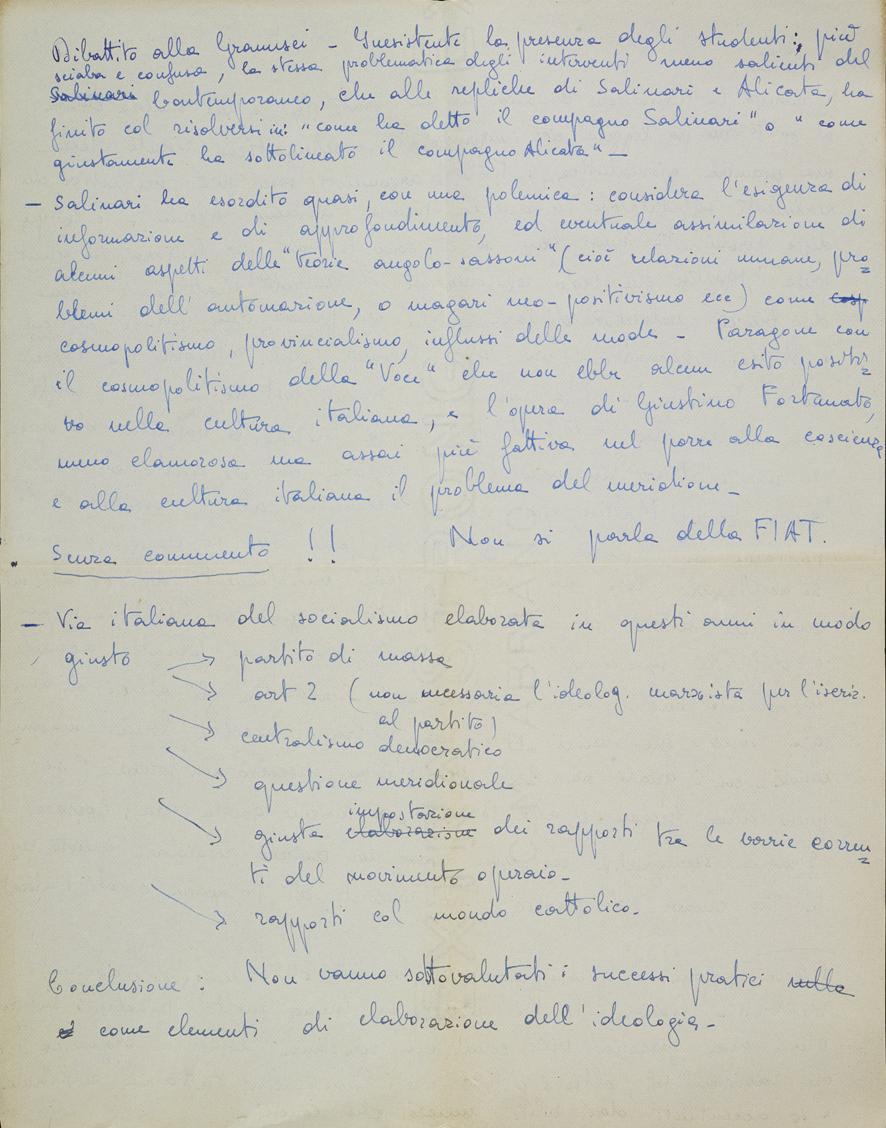 Dibattito alla Gramsci - Inesistente la presenza degli studenti; più
sciaba e confusa, la stessa problematica degli interventi meno salienti del
Salinari Contemporaneo, che alle repliche di Salinari e Alicata, ha
finito col risolversi in: "come ha detto il compagno Salinari" o "come
giustamente ha sottolineato il compagno Alicata" -
- Salinari ha esordito quasi con una polemica: considera l'esigenza di
informazione e di approfondimento, ed eventuale assimilazione di
alcuni aspetti delle "teorie angolo-sassoni" (cioè relazioni umane, pro=
blemi dell'automazione, o magari neo-positivismo ecc) come cosp
cosmopolitismo, provincialismo, influssi delle mode - Paragone con
il cosmopolitismo della "Voce" che non ebbe alcun esito positi=
vo nella cultura italiana, e l'opera di Giustino Fortunato,
meno clamorosa ma assai più fattiva nel porre alla coscienza
e alla cultura italiana il problema del meridione -
Senza commento !! Non si parla della FIAT.
- Via italiana del socialismo elaborata in questi anni in modo
giusto → partito di massa
→ art 2 (non necessaria l'ideolog. marxista per l'iscriz.
al partito)
→ centralismo democratico
→ questione meridionale
impostazione
→ giusta elaborazione dei rapporti tra le varie corren=
ti del movimento operaio -
→ rapporti col mondo cattolico.
Conclusione: Non vanno sottovalutati i successi pratici nella
come elementi di elaborazione dell'ideologia -